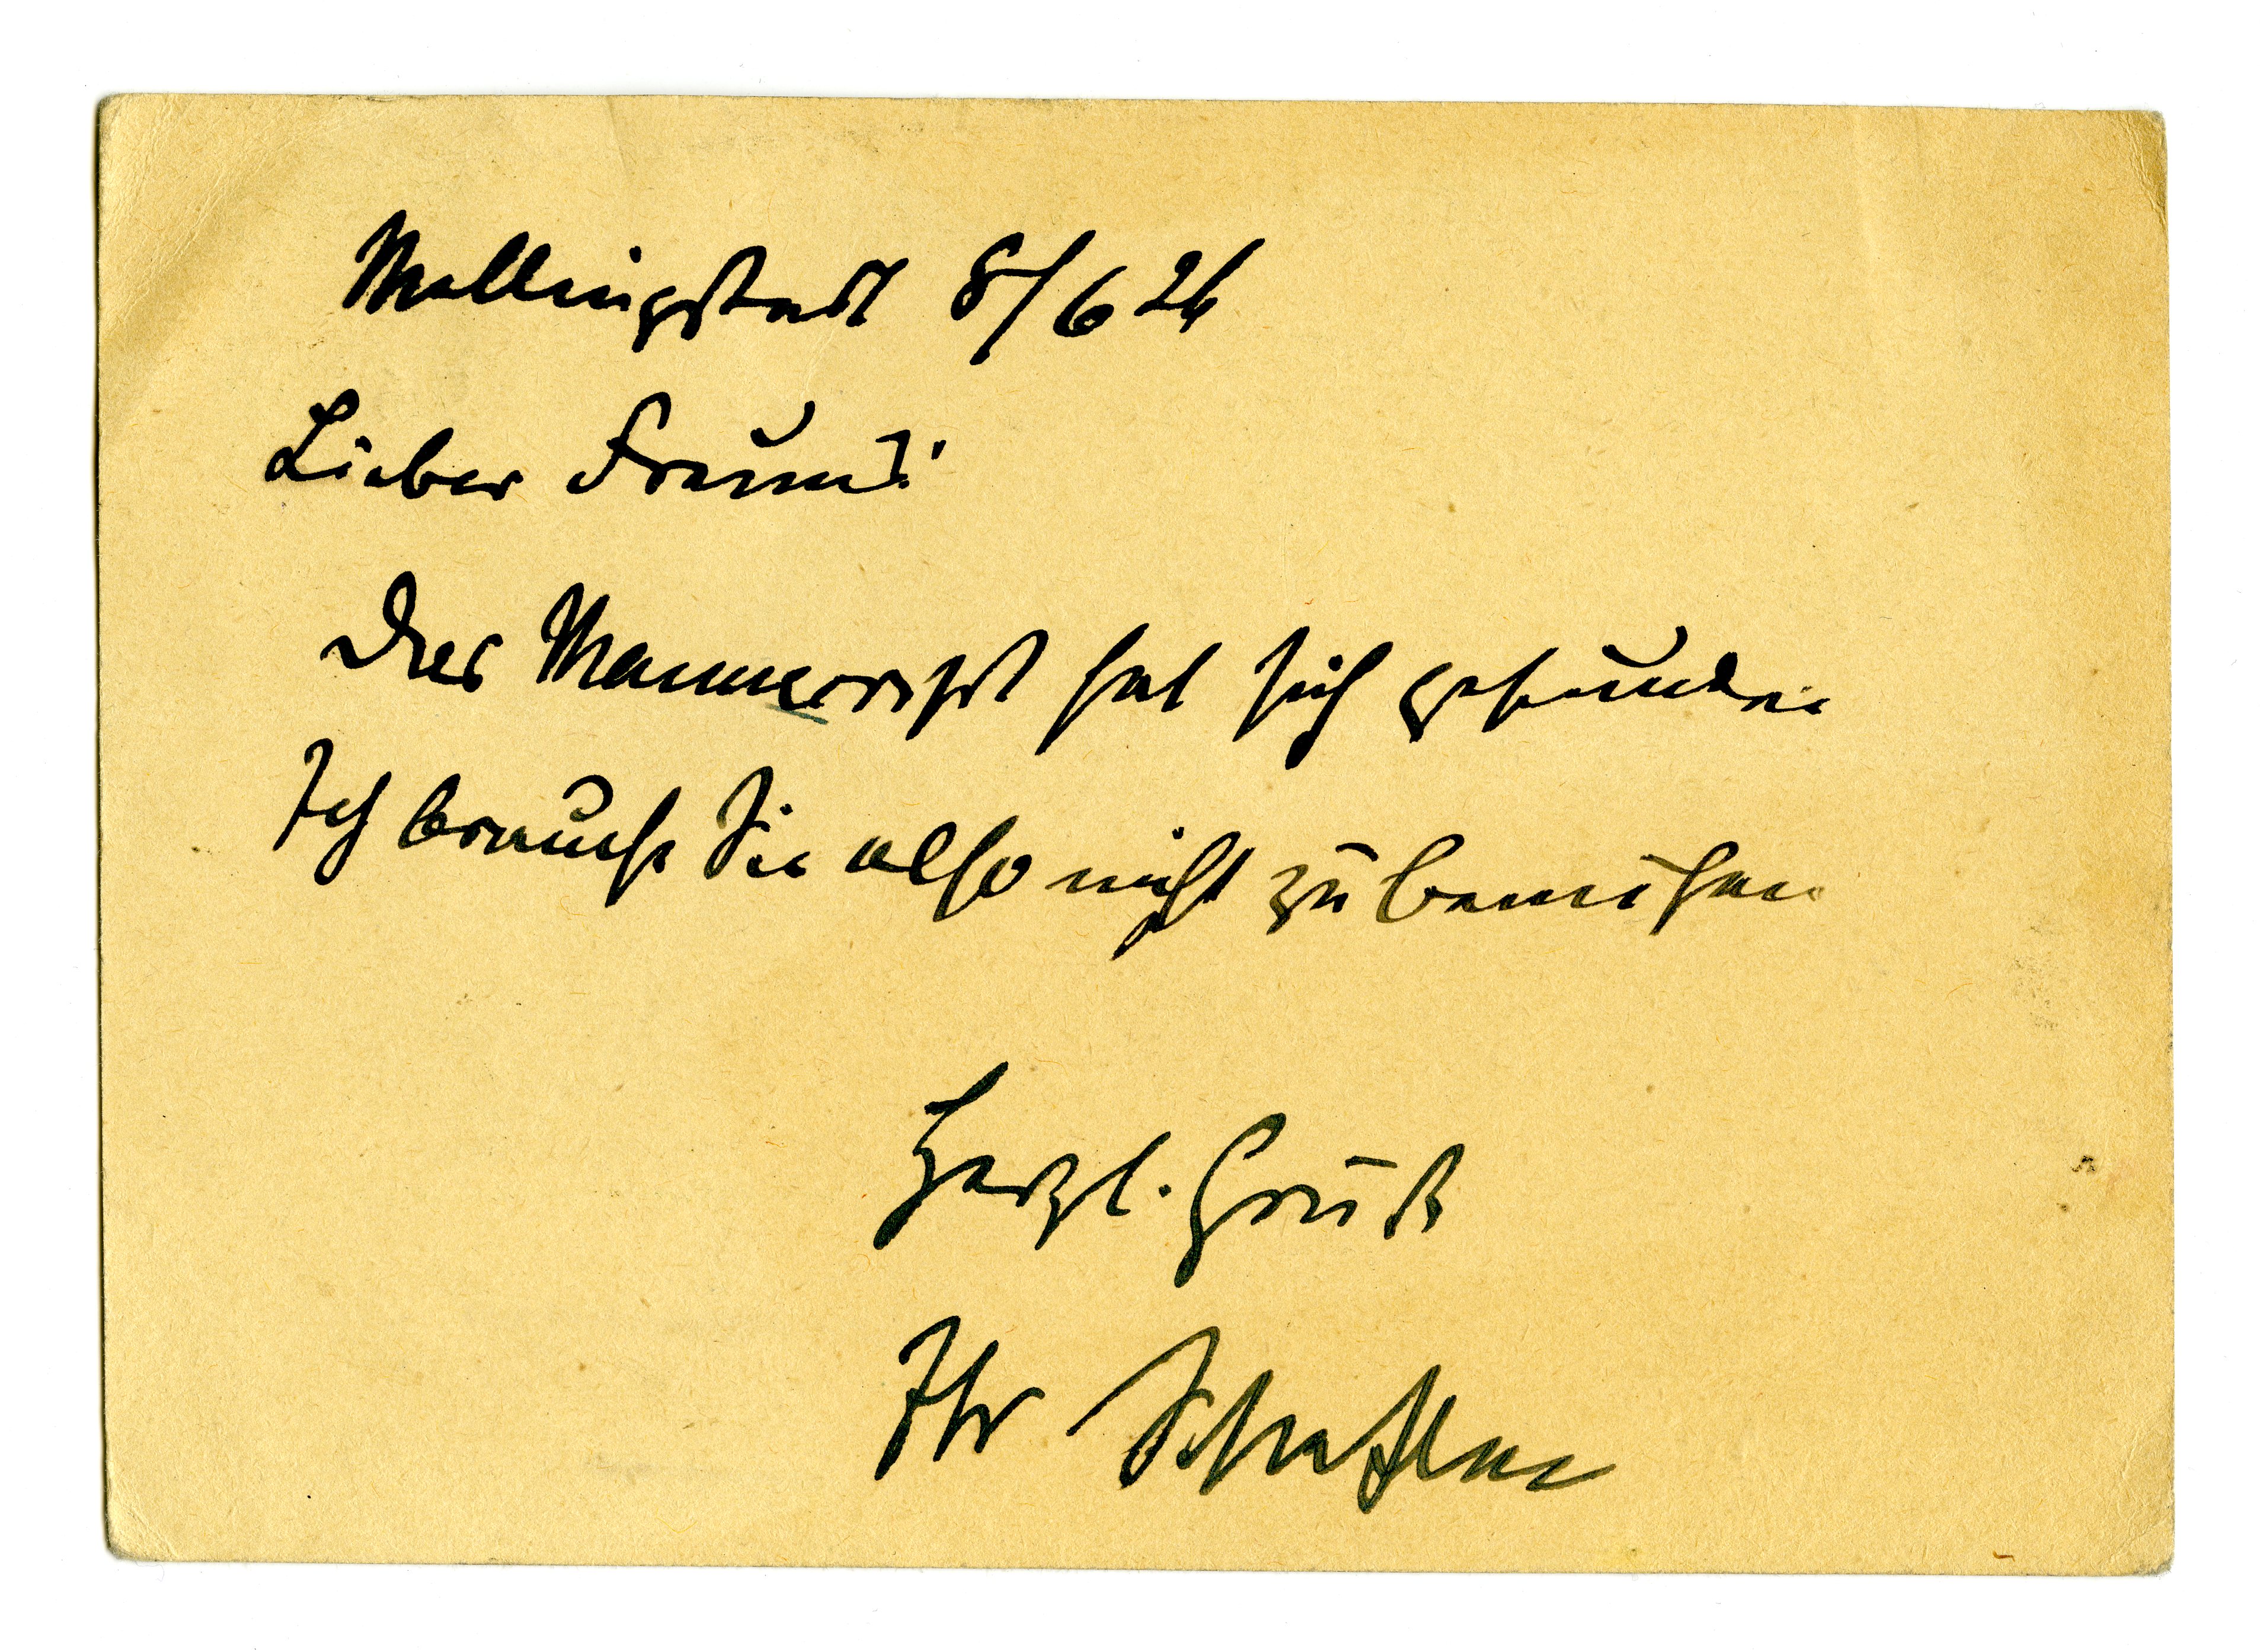 Mellingstedt 8/6 26
Lieber Freund!
Das Manuscript hat sich gefunden
Ich brauche Sie also nicht zu bemühen
Herzl. Gruß
Ihr